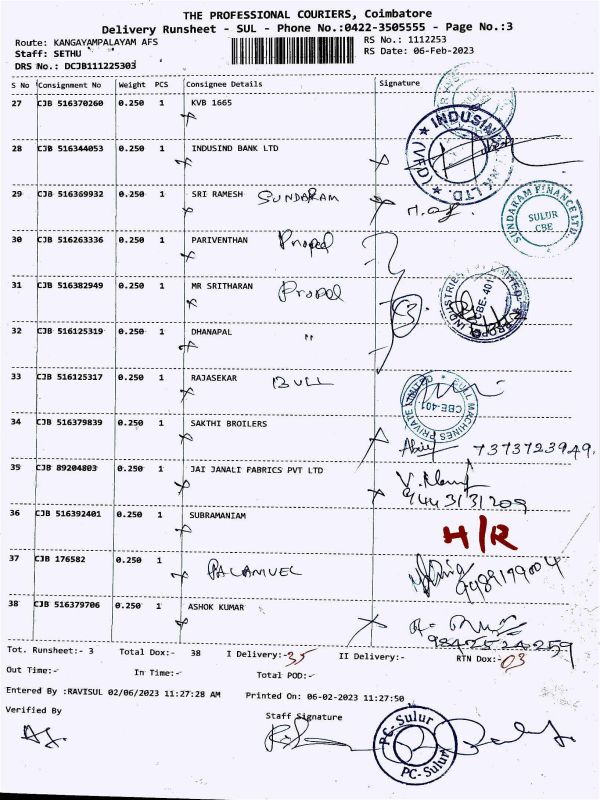 THE PROFESSIONAL COURIERS, Coimbatore
Delivery Runsheet - SUL - Phone No.:0422-3505555 - Page No.:3
Route: KANGAYAMPALAYAM AFS RS No.: 1112253
Staff: SETHU RS Date: 06-Feb-2023
DRS No.: DCJB111225303
S No Consignment No Weight PCS Consignee Details Signature
27 CJB 516370260 0.250 1 KVB 1665
28 CJB 516344053 0.250 1 INDUSIND BANK LTD
29 CJB 516369932 0.250 1 SRI RAMESH SUNDARAM
SUNDARAM FINANCE LTD.
SULUR
CBE
30 CJB 516263336 0.250 1 PARIVENTHAN Propel
31 CJB 516382949 0.250 1 MR SRITHARAN Propel
CBE-401
3
32 CJB 516125319 0.250 1 DHANAPAL "
33 CJB 516125317 0.250 1 RAJASEKAR BULL
BULL MACHINES PRIVATE LIMITED
CBE-401
34 CJB 516379839 0.250 1 SAKTHI BROILERS
7373723949.
35 CJB 89204803 0.250 1 JAI JANALI FABRICS PVT LTD
9443131209
36 CJB 516392401 0.250 1 SUBRAMANIAM H/R
37 CJB 176582 0.250 1 PALANIVEL
9489199004
38 CJB 516379706 0.250 1 ASHOK KUMAR
Tot. Runsheet:- 3 Total Dox:- 38 I Delivery:-35 II Delivery:- RTN Dox:-03
Out Time:- In Time:- Total POD:-
Entered By :RAVISUL 02/06/2023 11:27:28 AM Printed On: 06-02-2023 11:27:50
Verified By Staff Signature
PC-Sulur
PC-Sulur